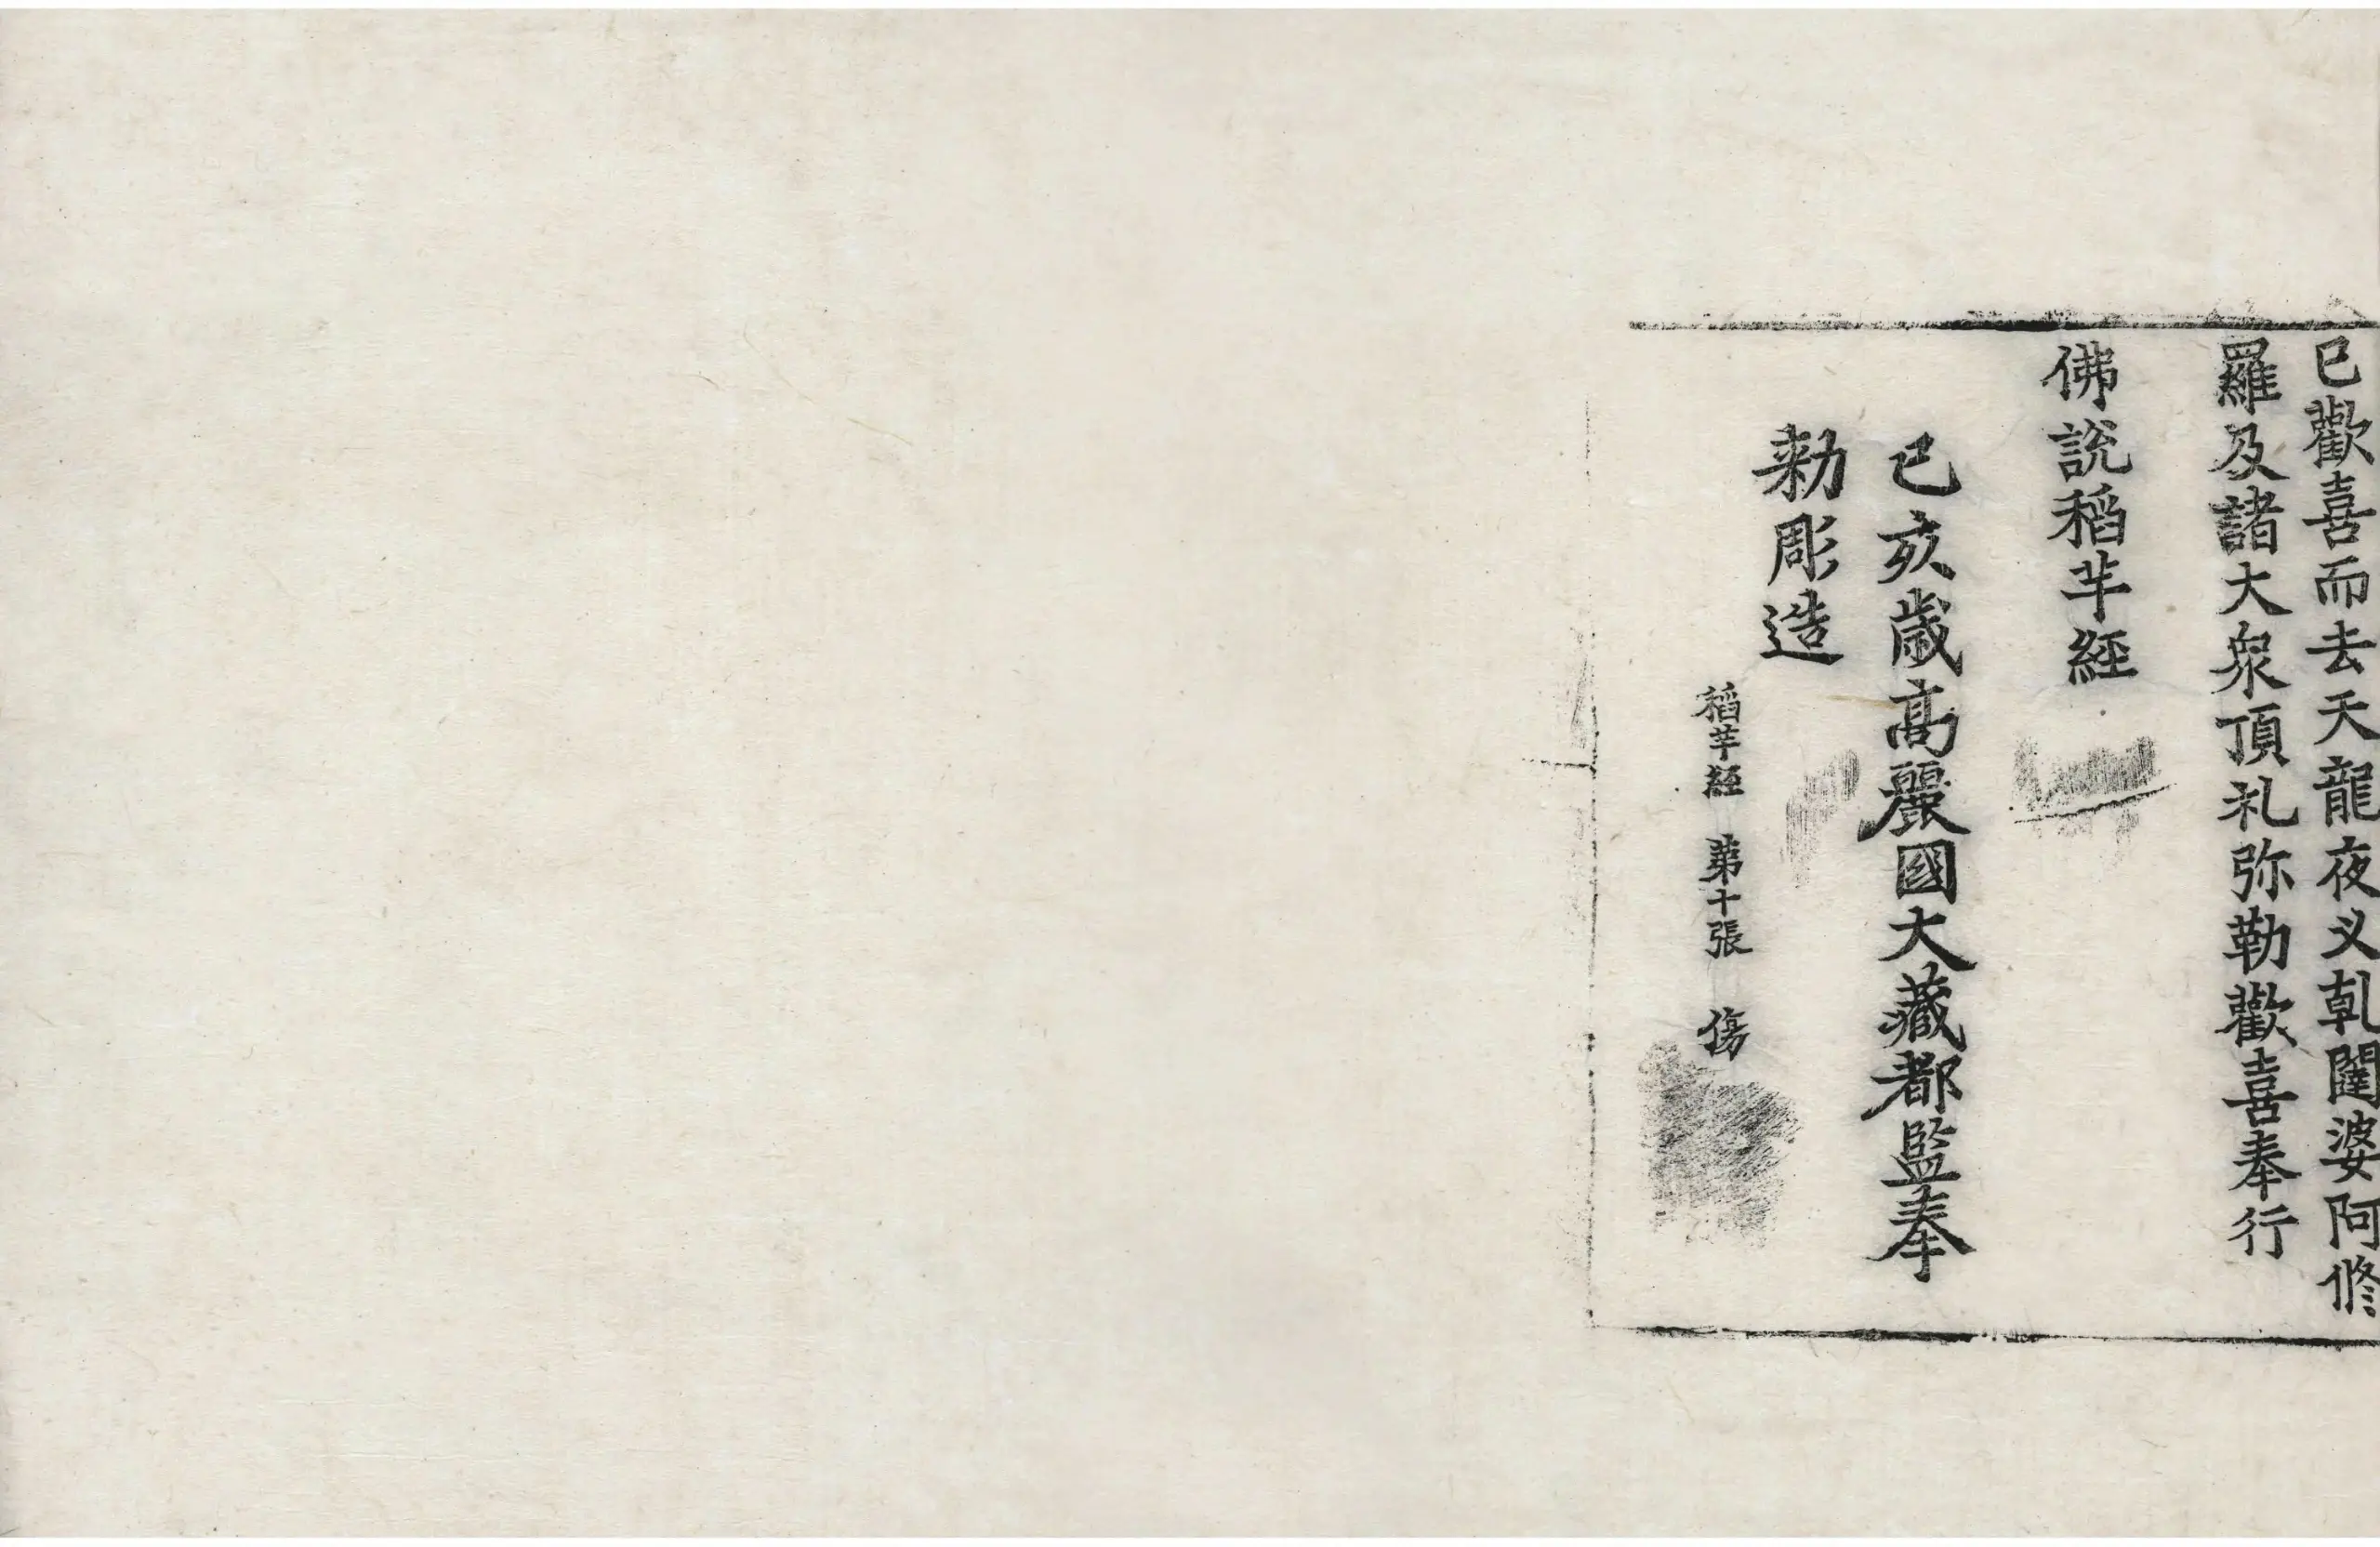 已歡喜而去天龍夜义乹闥婆阿脩
羅及諸大衆頂礼弥勒歡喜奉行
佛說稻芉經
己亥歲高麗國大藏都監奉
勑彫造
稻芉經 第十張 傷